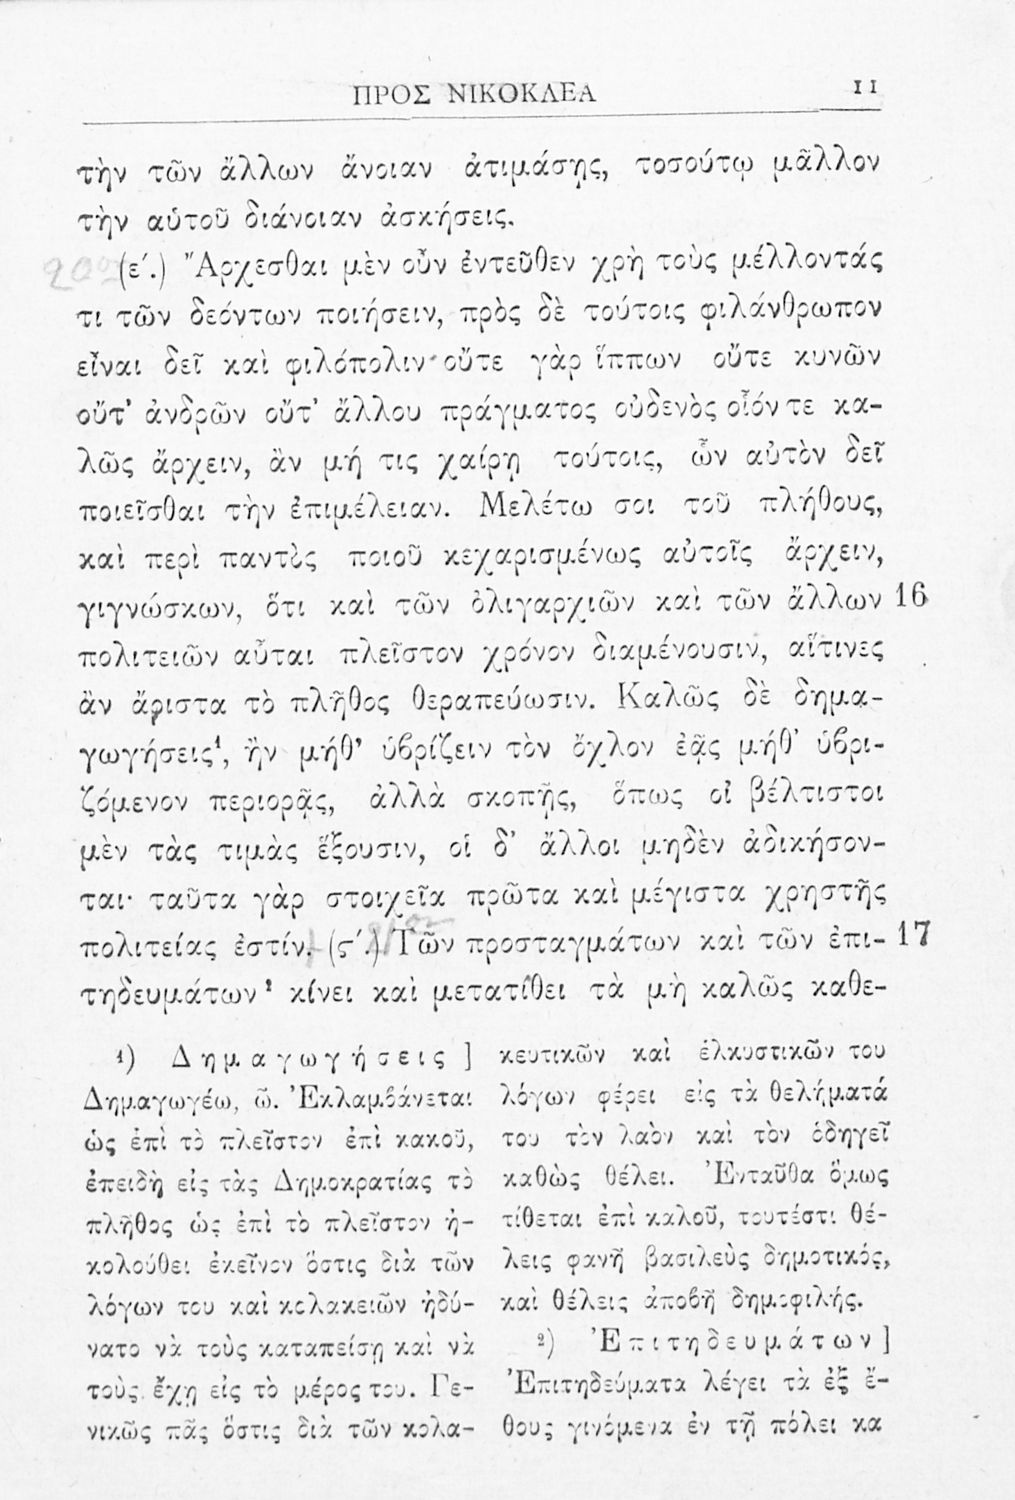 ΠΡΟΣ ΝΙΚΟΚΛΕΑ 11
τὴν τῶν ἄλλων ἄνοιαν ἀτιμάσῃς, τοσούτῳ μᾶλλον
τὴν αὑτοῦ διάνοιαν ἀσκήσεις.
(ε΄.) Ἄρχεσθαι μὲν οὖν ἐντεῦθεν χρὴ τοὺς μέλλοντάς
τι τῶν δεόντων ποιήσειν, πρὸς δὲ τούτοις φιλάνθρωπον
εἶναι δεῖ καὶ φιλόπολιν· οὔτε γὰρ ἵππων οὔτε κυνῶν
οὔτ' ἀνδρῶν οὔτ' ἄλλου πράγματος οὐδενὸς οἷόν τε κα-
λῶς ἄρχειν, ἂν μή τις χαίρῃ τούτοις, ὧν αὐτὸν δεῖ
ποιεῖσθαι τὴν ἐπιμέλειαν. Μελέτω σοι τοῦ πλήθους,
καὶ περὶ παντὸς ποιοῦ κεχαρισμένως αὐτοῖς ἄρχειν,
γιγνώσκων, ὅτι καὶ τῶν ὀλιγαρχιῶν καὶ τῶν ἄλλων 16
πολιτειῶν αὗται πλεῖστον χρόνον διαμένουσιν, αἵτινες
ἂν ἄριστα τὸ πλῆθος θεραπεύωσιν. Καλῶς δὲ δημα-
γωγήσεις¹, ἢν μήθ' ὑβρίζειν τὸν ὄχλον ἐᾷς μήθ' ὑβρι-
ζόμενον περιορᾷς, ἀλλὰ σκοπῇς, ὅπως οἱ βέλτιστοι
μὲν τὰς τιμὰς ἕξουσιν, οἱ δ' ἄλλοι μηδὲν ἀδικήσον-
ται· ταῦτα γὰρ στοιχεῖα πρῶτα καὶ μέγιστα χρηστῆς
πολιτείας ἐστίν. (ς΄.) Τῶν προσταγμάτων καὶ τῶν ἐπι- 17
τηδευμάτων² κίνει καὶ μετατίθει τὰ μὴ καλῶς καθε-
¹) Δημαγωγήσεις]
Δημαγωγέω, ῶ. Ἐκλαμβάνεται
ὡς ἐπὶ τὸ πλεῖστον ἐπὶ κακοῦ,
ἐπειδὴ εἰς τὰς Δημοκρατίας τὸ
πλῆθος ὡς ἐπὶ τὸ πλεῖστον ἠ-
κολούθει ἐκεῖνον ὅστις διὰ τῶν
λόγων του καὶ κολακειῶν ἠδύ-
νατο νὰ τοὺς καταπείσῃ καὶ νὰ
τοὺς ἔχῃ εἰς τὸ μέρος του. Γε-
νικῶς πᾶς ὅστις διὰ τῶν κολα-
κευτικῶν καὶ ἑλκυστικῶν του
λόγων φέρει εἰς τὰ θελήματά
του τὸν λαὸν καὶ τὸν ὁδηγεῖ
καθὼς θέλει. Ἐνταῦθα ὅμως
τίθεται ἐπὶ καλοῦ, τουτέστι θέ-
λεις φανῆ βασιλεὺς δημοτικός,
καὶ θέλεις ἀποβῆ δημοφιλής.
²) Ἐπιτηδευμάτων]
Ἐπιτηδεύματα λέγει τὰ ἐξ ἔ-
θους γινόμενα ἐν τῇ πόλει κα